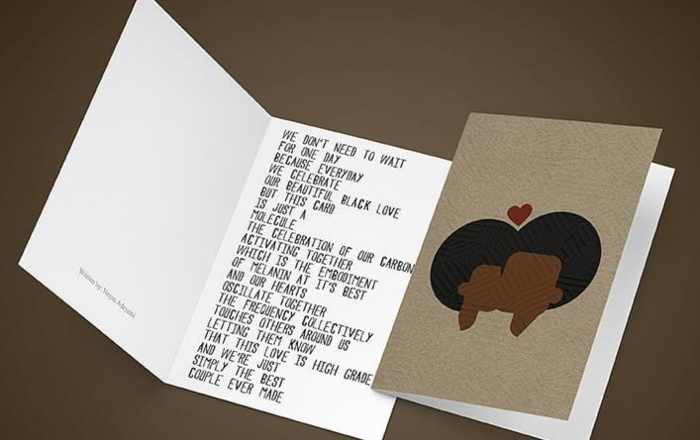 Written by: Noyin Adeyemi
WE DON'T NEED TO WAIT
FOR ONE DAY
BECAUSE EVERYDAY
WE CELEBRATE
OUR BEAUTIFUL BLACK LOVE
BUT THIS CARD
IS JUST A
MOLECULE
THE CELEBRATION OF OUR CARBON
ACTIVATING TOGETHER
WHICH IS THE EMBODIMENT
OF MELANIN AT IT'S BEST
AND OUR HEARTS
OSCILLATE TOGETHER
THE FREQUENCY COLLECTIVELY
TOUCHES OTHERS AROUND US
LETTING THEM KNOW
THAT THIS LOVE IS HIGH GRADE
AND WE'RE JUST
SIMPLY THE BEST
COUPLE EVER MADE